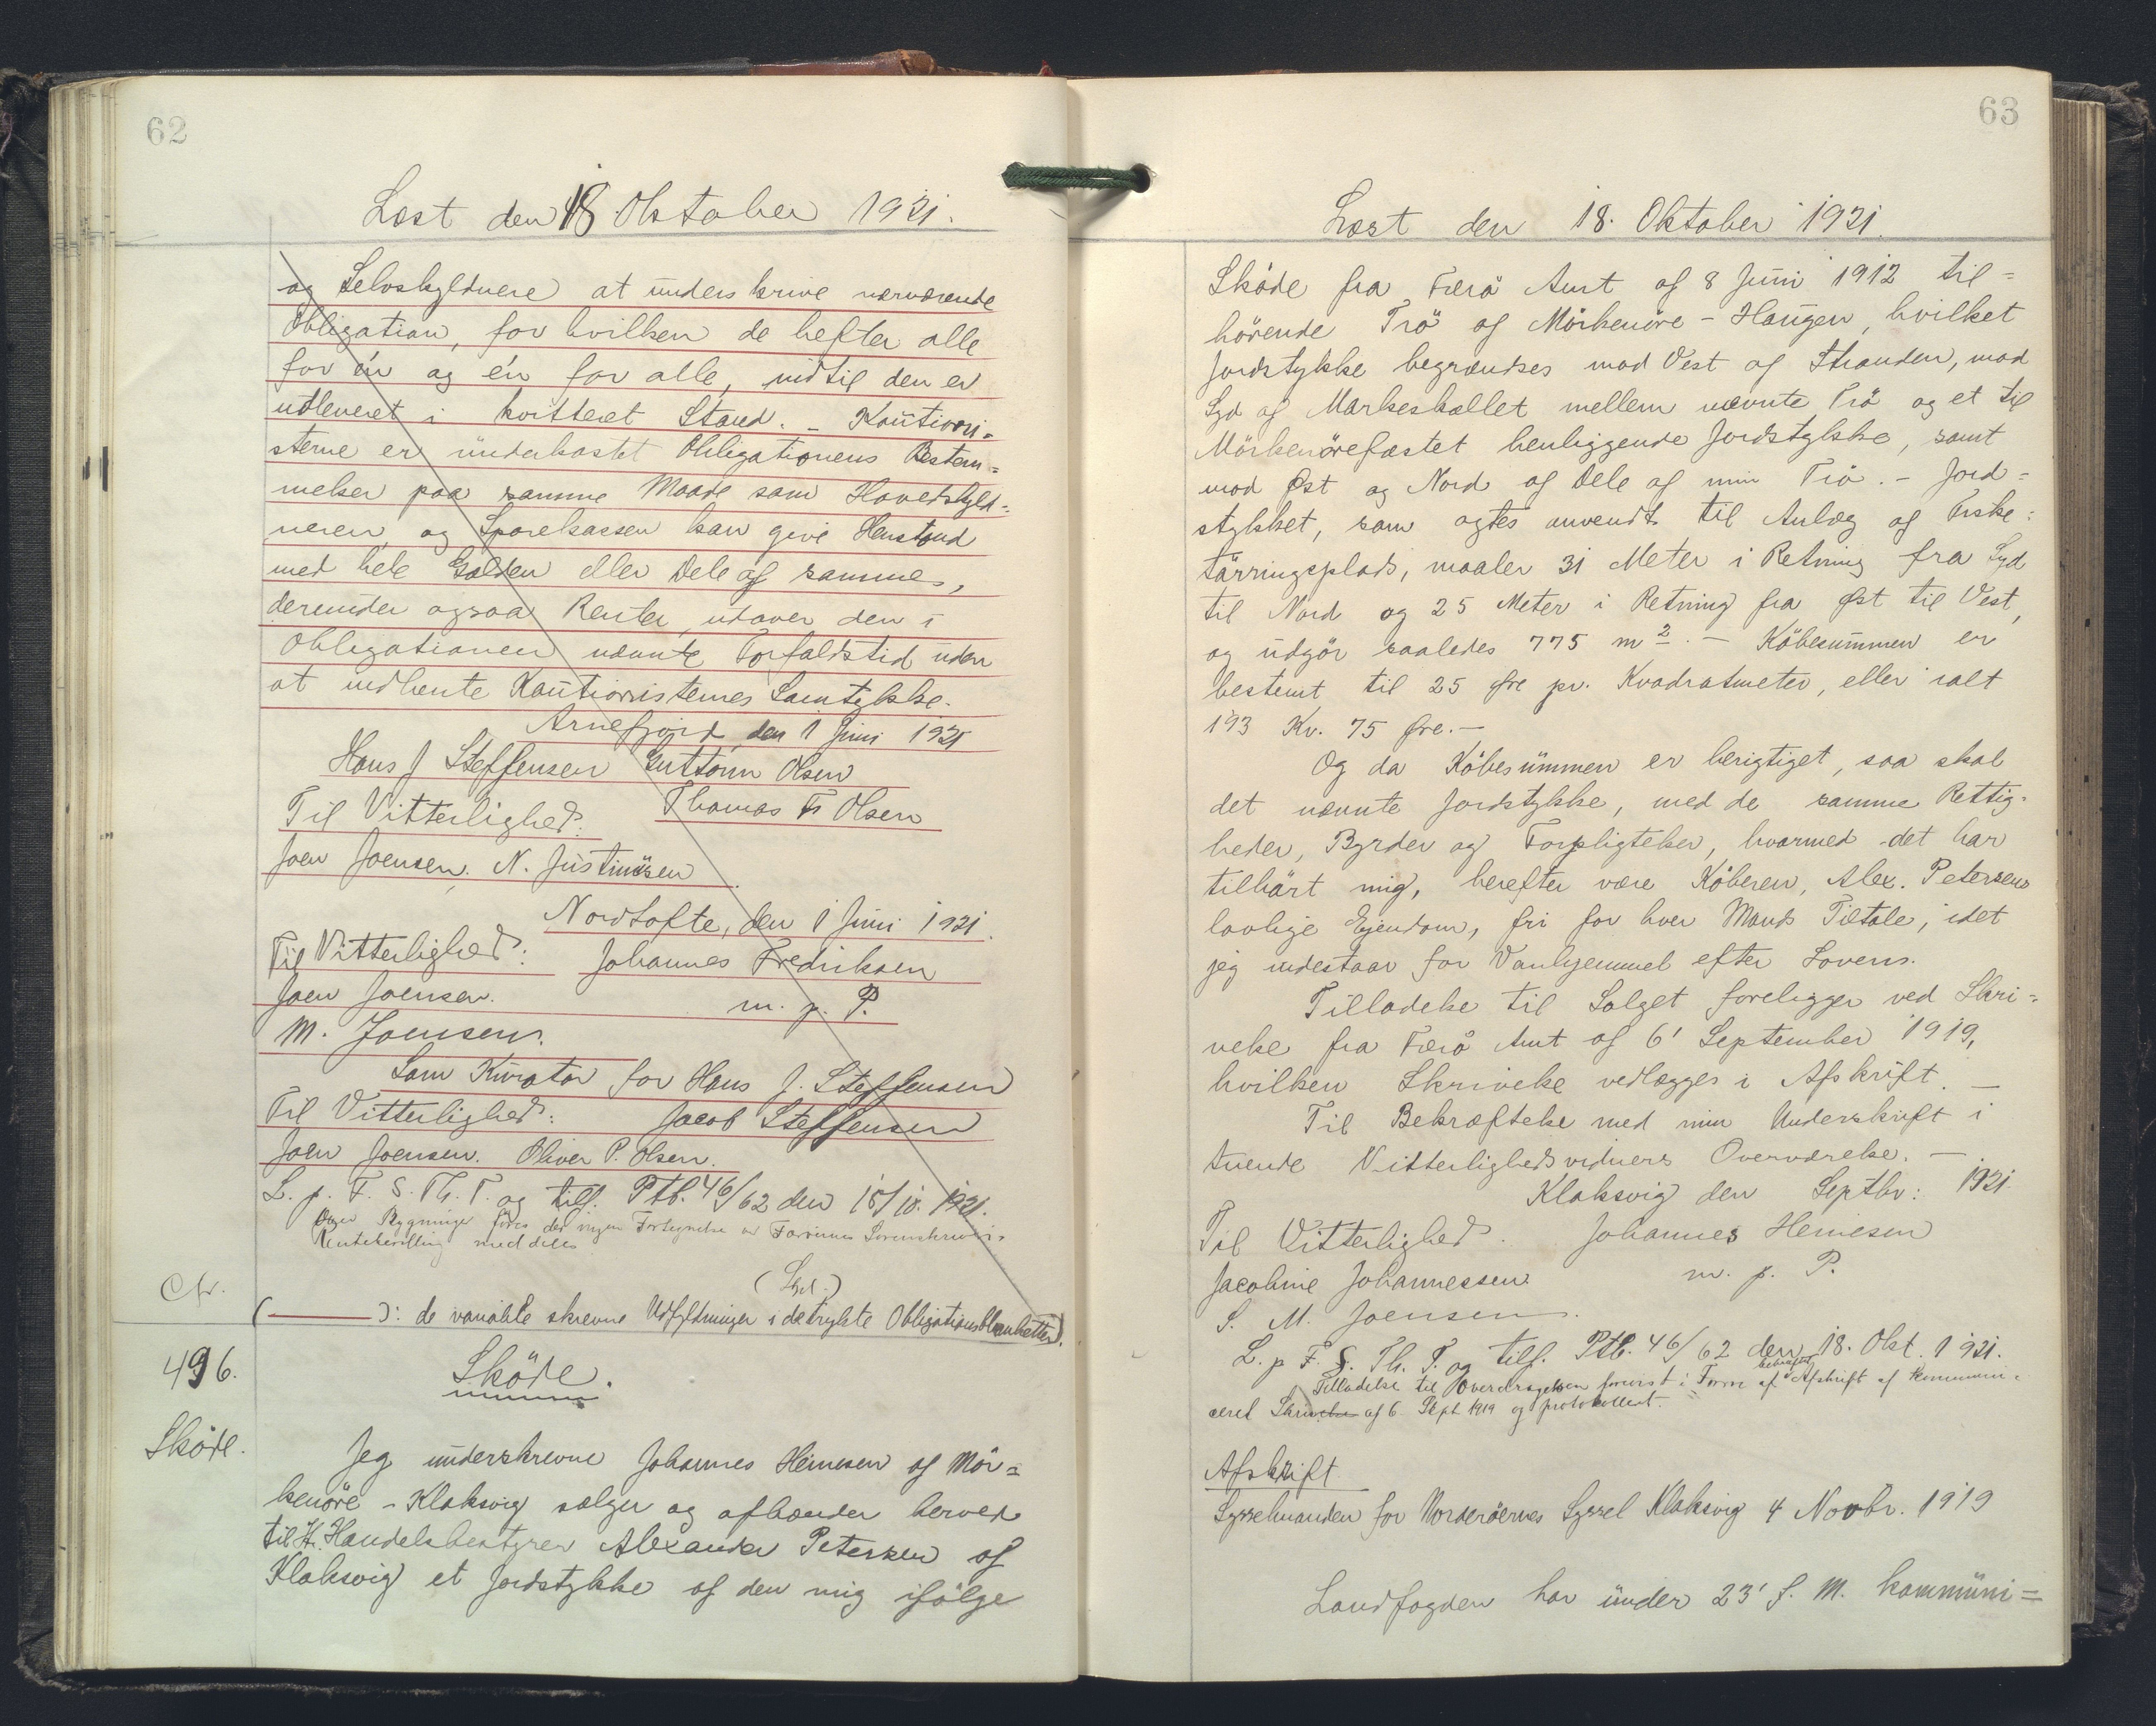 62
Læst den 18 Oktober 1921.
og Selvskyldnere at underskrive nærværende
Obligation, for hvilken de hefter alle
for én og én for alle, indtil den er
udleveret i kvitteret Stand. - Kautioni-
sterne er underkastet Obligationens Bestem=
melser paa samme Maade som Hovedskyld=
neren, og Sparekassen kan give Henstand
med hele Gælden eller Dele af samme,
derunder ogsaa Renter, udover den i
Obligationen nævnte Forfaldstid uden
at indhente Kautionisternes Samtykke.
Arnefjord, den 1 Juni 1921
Hans J Steffensen Guttorm Olsen
Til Vitterlighed: Thomas Fr Olsen
Joen Joensen, N. Justinüsen
Nordtofte, den 1 Juni 1921.
Til Vitterlighed: Johannes Fredriksen
Joen Joensen. m. p. P.
M. Joensen.
Som Kurator for Hans J. Steffensen
Til Vitterlighed: Jacob Steffensen
Joen Joensen. Oliver P. Olsen.
L. p. F. S. Th. T. og tilf. Ptb. 46/62 den 18/10. 1921.
Over Bygninger føres der ingen Fortegnelse
Rentebevilling meddeles
Cfr. (Sgd.)
( ——— ): de variable skrevne Udfyldninger i de trykte Obligationsblanketter).
496. Sköde.
Sköde.
Jeg underskrevne Johannes Heinesen af Mör=
kenöre - Klaksvig sælger og afhænder herved
til Hr. Handelsbestyrer Alexander Petersen af
Klaksvig et Jordstykke af den mig ifölge
63
Læst den 18. Oktober 1921.
Sköde fra Færö Amt af 8 Juni 1912 til=
hörende Trö af Mörkenöre - Haugen, hvilket
Jordstykke begrændses mod Vest af Stranden, mod
Syd af Markeskællet mellem nævnte Trö og et til
Mörkenörefæstet henliggende Jordstykke, samt
mod Øst og Nord af Dele af min Trö. - Jord=
stykket, som agtes anvendt til Anlæg af Fiske=
tärringsplads, maaler 31 Meter i Retning fra Syd
til Nord og 25 Meter i Retning fra Øst til Vest,
og udgör saaledes 775 m². - Köbesummen er
bestemt til 25 Øre pr. Kvadratmeter, eller ialt
193 Kr. 75 Øre. -
Og da Köbesümmen er berigtiget, saa skal
det nævnte Jordstykke, med de samme Rettig=
heder, Byrder og Forpligtelser, hvormed det har
tilhört mig, herefter være Köberen, Alex. Petersens
lovlige Ejendom, fri for hver Mands Tiltale, idet
jeg indestaar for Vanhjemmel efter Loven.
Tilladelse til Salget foreligger ved Skri=
velse fra Færö Amt af 6' September 1919,
hvilken Skrivelse vedlægges i Afskrift. -
Til Bekræftelse med min Underskrift i
tvende Vitterlighedsvidners Overværelse. -
Klaksvig den Septbr: 1921
Til Vitterlighed. Johannes Heinesen
Jacobine Johannessen. m. p. P.
S. M. Joensen.
L. p F. S. Th. T. og tilf. Ptb. 46/62 den 18. Okt. 1921.
Tilladelse til Overdragelsen forevist i Form af bekræftet Afskrift af kommuni=
ceret Skrivelse af 6. Sept 1919 og protokolleret.
Afskrift
Sysselmanden for Norderöernes Syssel Klaksvig 4 Novbr. 1919
Landfogden har ünder 23' f. M. kommüni=